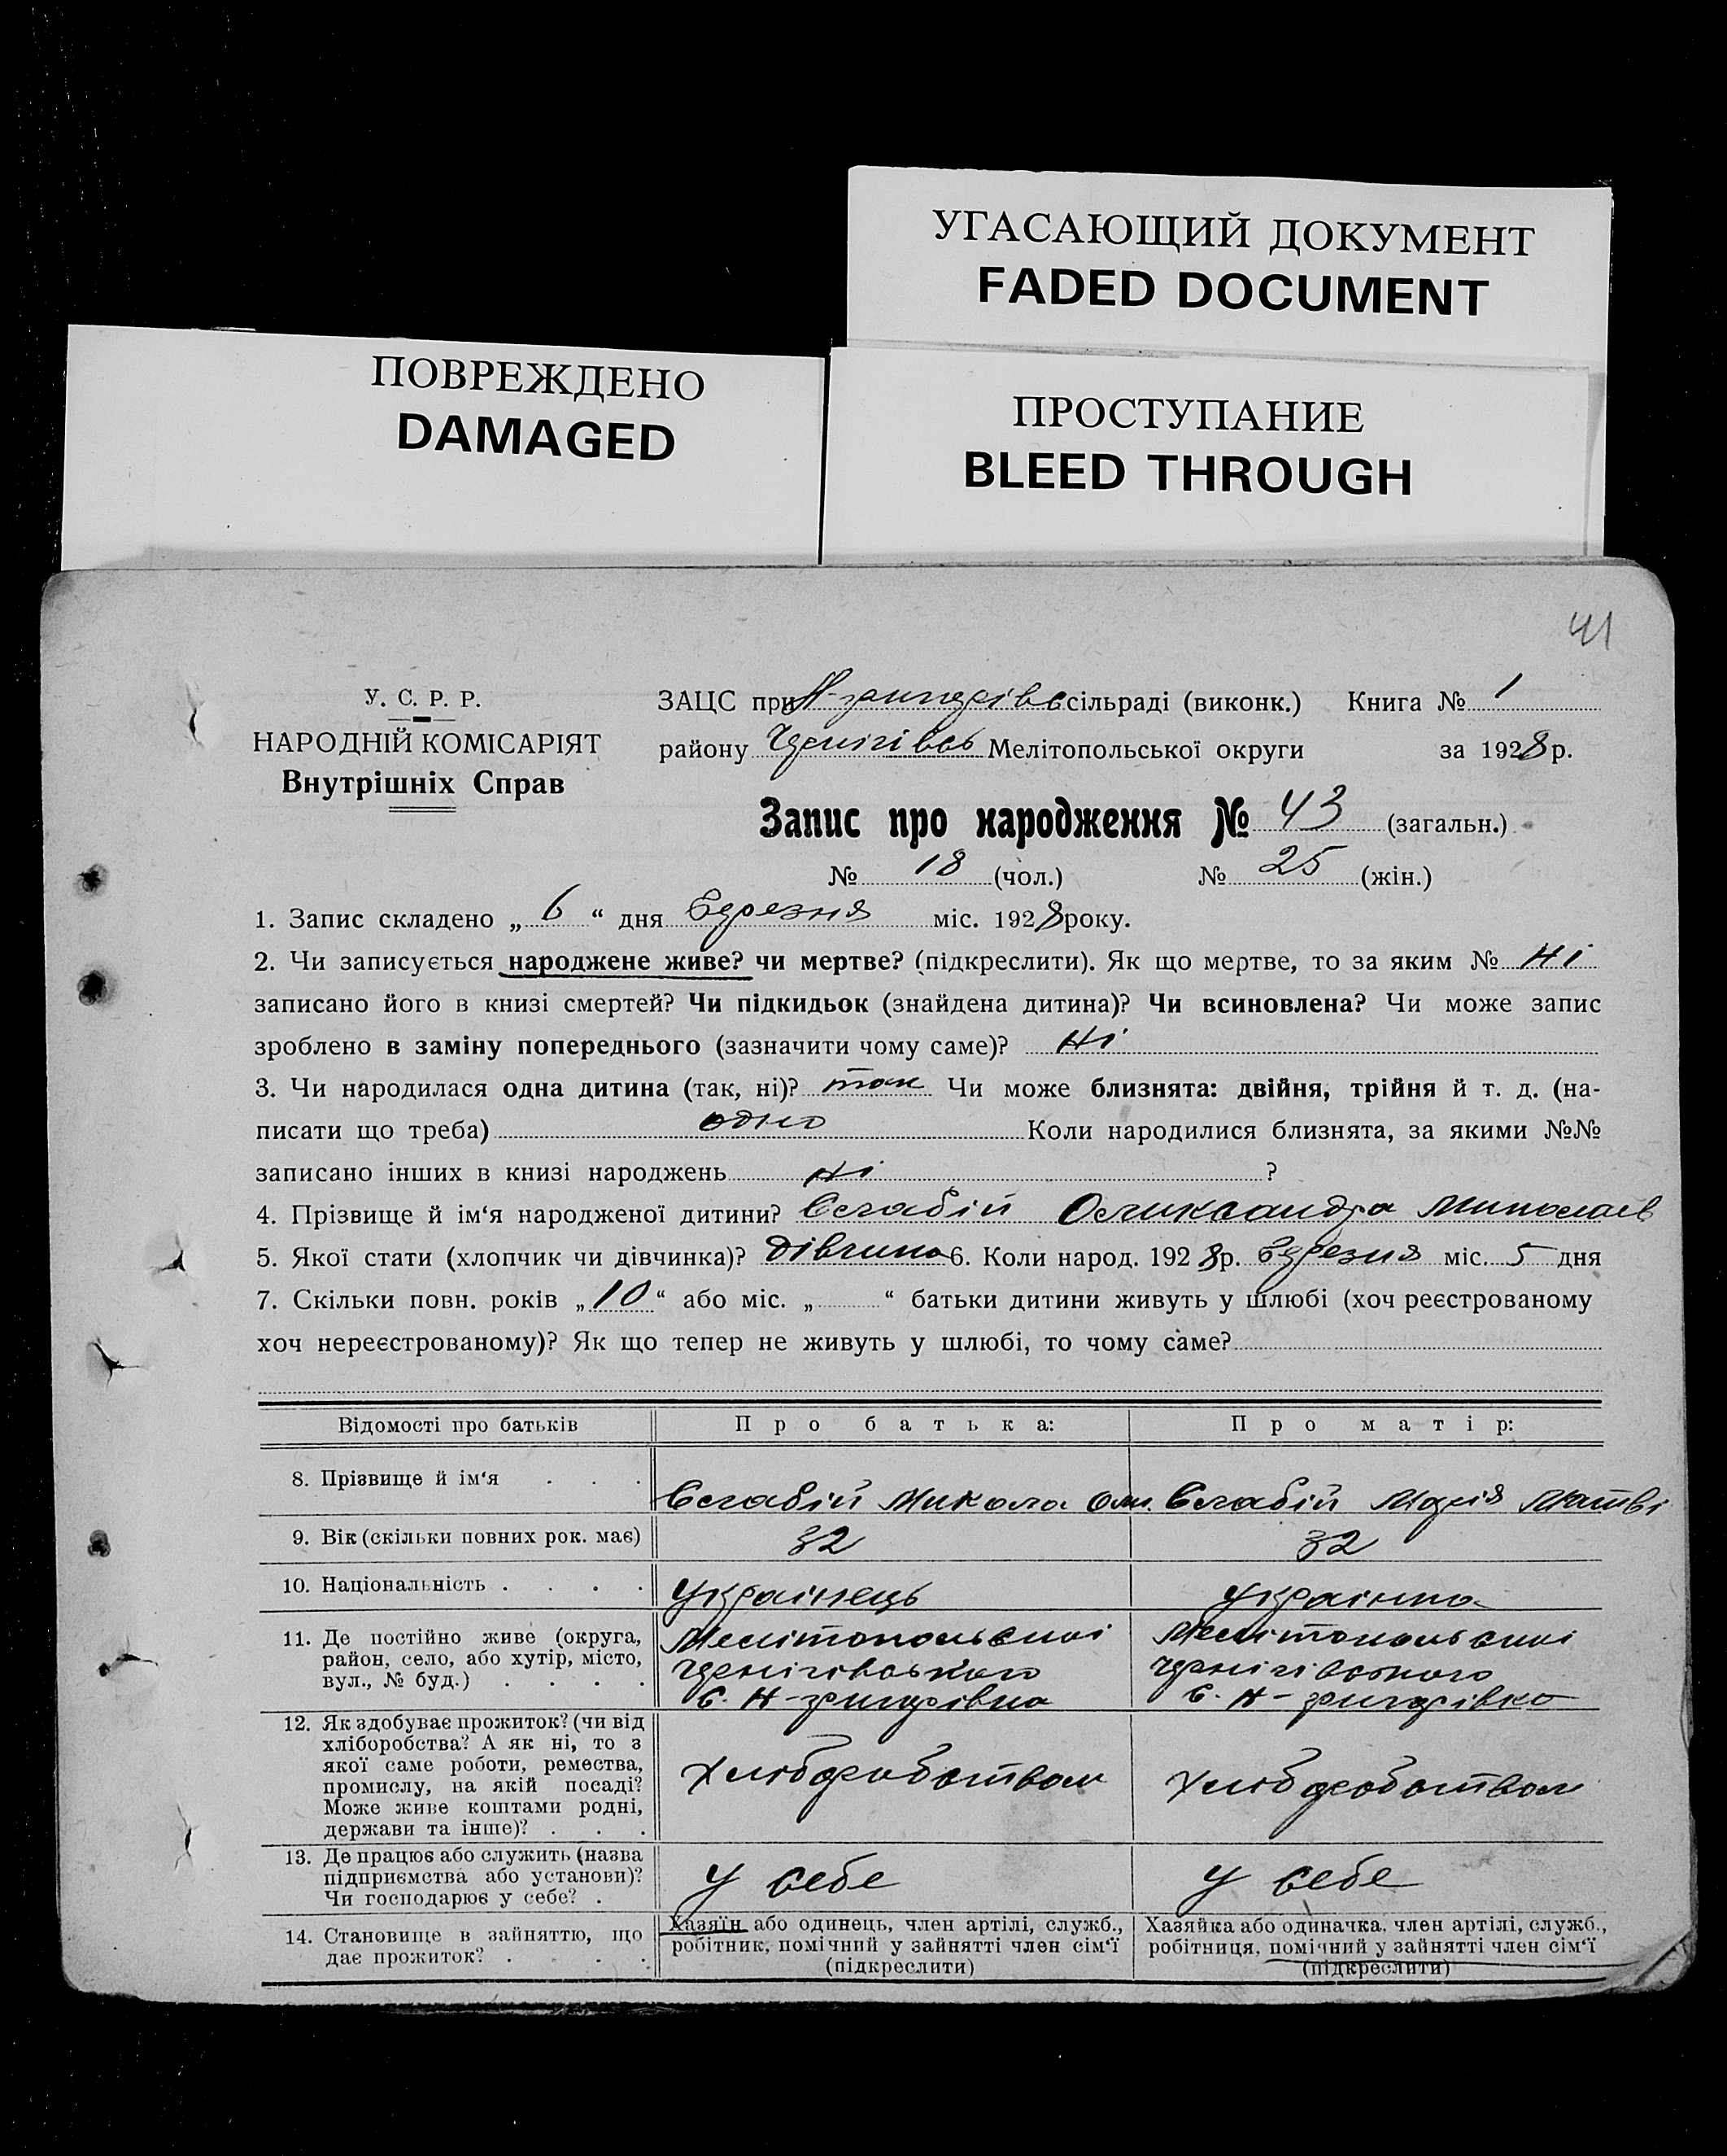 УГАСАЮЩИЙ ДОКУМЕНТ
FADED DOCUMENT
ПОВРЕЖДЕНО
DAMAGED
ПРОСТУПАНИЕ
BLEED THROUGH
41
У. С. Р. Р.
НАРОДНІЙ КОМІСАРІЯТ
Внутрішніх Справ
ЗАЦС при Н-григорівс сільраді (виконк.) Книга № 1
району Чернігівсь Мелітопольської округи за 1928 р.
Запис про народження № 43 (загальн.)
№ 18 (чол.) № 25 (жін.)
1. Запис складено „ 6 “ дня Березня міс. 1928 року.
2. Чи записується народжене живе? чи мертве? (підкреслити). Як що мертве, то за яким № Ні
записано його в книзі смертей? Чи підкидьок (знайдена дитина)? Чи всиновлена? Чи може запис
зроблено в заміну попереднього (зазначити чому саме)? Ні
3. Чи народилася одна дитина (так, ні)? так Чи може близнята: двійня, трійня й т. д. (на-
писати що треба) одно Коли народилися близнята, за якими №№
записано інших в книзі народжень ні ?
4. Прізвище й ім‘я народженої дитини? Слабій Олександра Миколаєв
5. Якої стати (хлопчик чи дівчинка)? дівчина 6. Коли народ. 1928 р. Березня міс. 5 дня
7. Скільки повн. років „ 10 “ або міс. „ “ батьки дитини живуть у шлюбі (хоч реєстрованому
хоч нереєстрованому)? Як що тепер не живуть у шлюбі, то чому саме?
Відомості про батьків Про батька: Про матір:
8. Прізвище й ім‘я Слабій Микола Ол. Слабій Марія Матві
9. Вік (скільки повних рок. має) 32 32
10. Національність Українець Українка
11. Де постійно живе (округа, Мелітопольської Мелітопольської
район, село, або хутір, місто, Чернігівського Чернігівського
вул., № буд.) С. Н-григорівка С. Н-григорівка
12. Як здобуває прожиток? (чи від
хліборобства? А як ні, то з
якої саме роботи, ремества,
промислу, на якій посаді? Хліборобством Хліборобством
Може живе коштами родні,
держави та інше)?
13. Де працює або служить (назва
підприємства або установи)? У себе У себе
Чи господарює у себе?
14. Становище в зайняттю, що
дає прожиток?
Хазяїн або одинець, член артілі, служб.,
робітник, помічний у зайнятті член сім‘ї
(підкреслити)
Хазяйка або одиначка, член артілі, служб.,
робітниця, помічний у зайнятті член сім‘ї
(підкреслити)